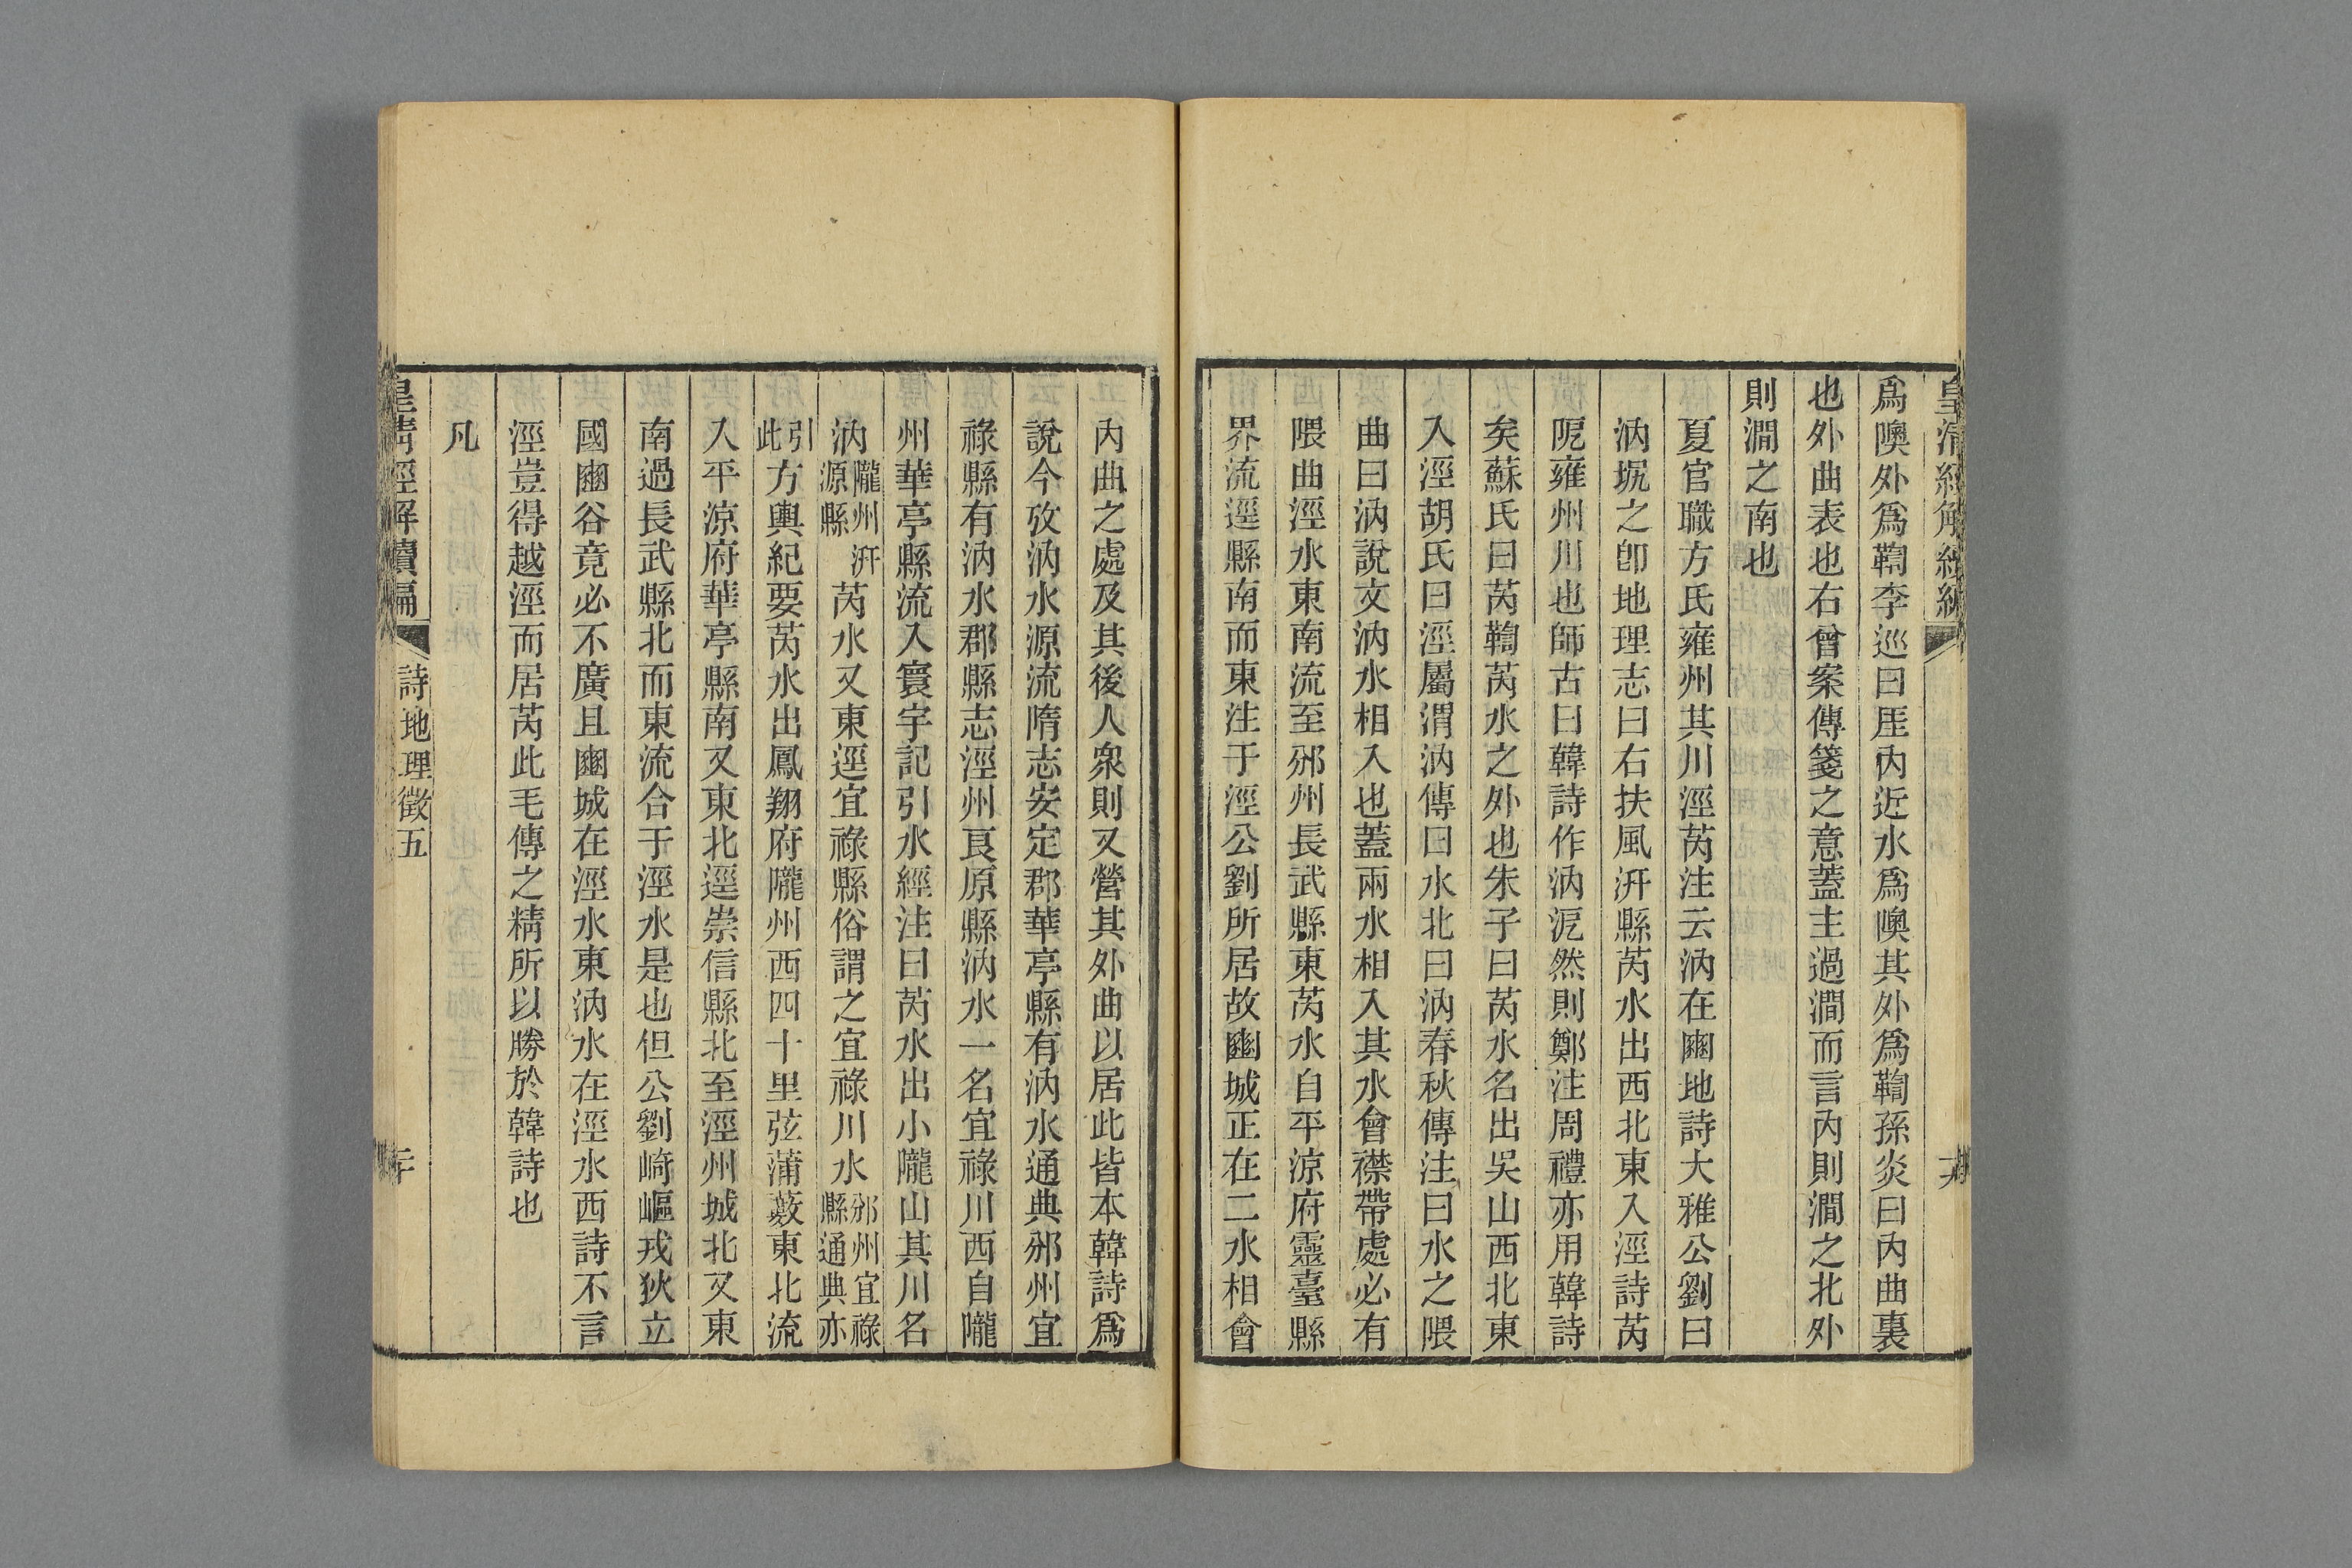 爲隩外爲鞫李巡曰厓內近水爲隩其外爲鞫孫炎曰內曲裏
也外曲表也右曾案傳箋之意蓋主過澗而言內則澗之北外
則澗之南也
夏官職方氏雍州其川涇芮注云汭在豳地詩大雅公劉曰
汭坭之卽地理志曰右扶風汧縣芮水出西北東入涇詩芮
阮雍州川也師古曰韓詩作汭泥然則鄭注周禮亦用韓詩
矣蘇氏曰芮鞫芮水之外也朱子曰芮水名出吳山西北東
入涇胡氏曰涇屬渭汭傳曰水北曰汭春秋傳注曰水之隈
曲曰汭說文汭水相入也蓋兩水相入其水會襟帶處必有
隈曲涇水東南流至邠州長武縣東芮水自平涼府靈臺縣
界流逕縣南而東注于涇公劉所居故豳城正在二水相會
內曲之處及其後人衆則又營其外曲以居此皆本韓詩爲
說今攷汭水源流隋志安定郡華亭縣有汭水通典邠州宜
祿縣有汭水郡縣志涇州良原縣汭水一名宜祿川西自隴
州華亭縣流入寰宇記引水經注曰芮水出小隴山其川名
汭隴州汧源縣芮水又東逕宜祿縣俗謂之宜祿川水邠州宜祿縣通典亦
引此方輿紀要芮水出鳳翔府隴州西四十里弦蒲藪東北流
入平涼府華亭縣南又東北逕崇信縣北至涇州城北又東
南過長武縣北而東流合于涇水是也但公劉崎嶇戎狄立
國豳谷竟必不廣且豳城在涇水東汭水在涇水西詩不言
涇豈得越涇而居芮此毛傳之精所以勝於韓詩也
凡
皇清經解續編 詩地理徵五